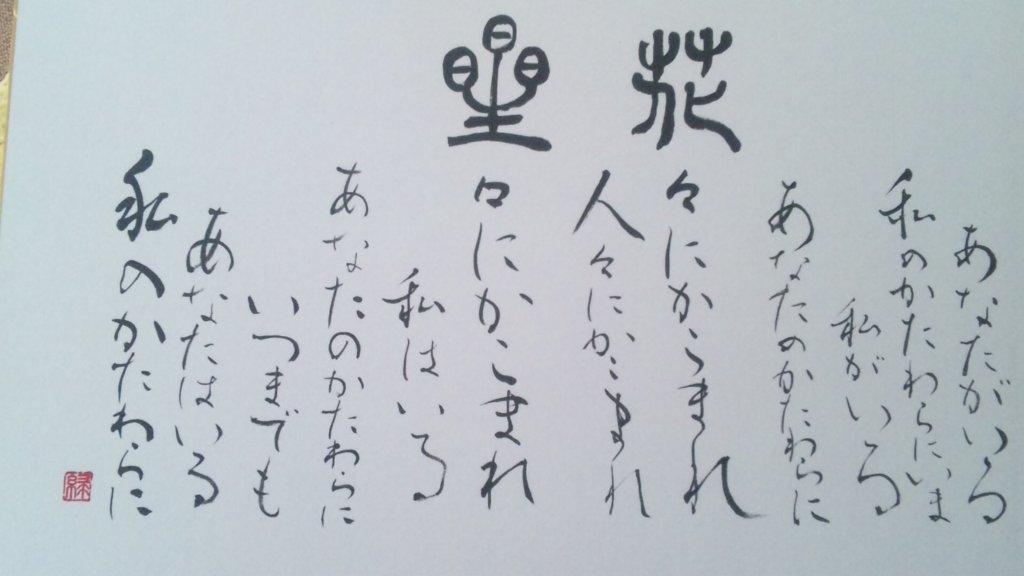 あなたがいる
私のかたわらにいま
私がいる
あなたのかたわらに
花々にかこまれ
人々にかこまれ
星々にかこまれ
私はいる
あなたのかたわらに
いつまでも
あなたはいる
私のかたわらに